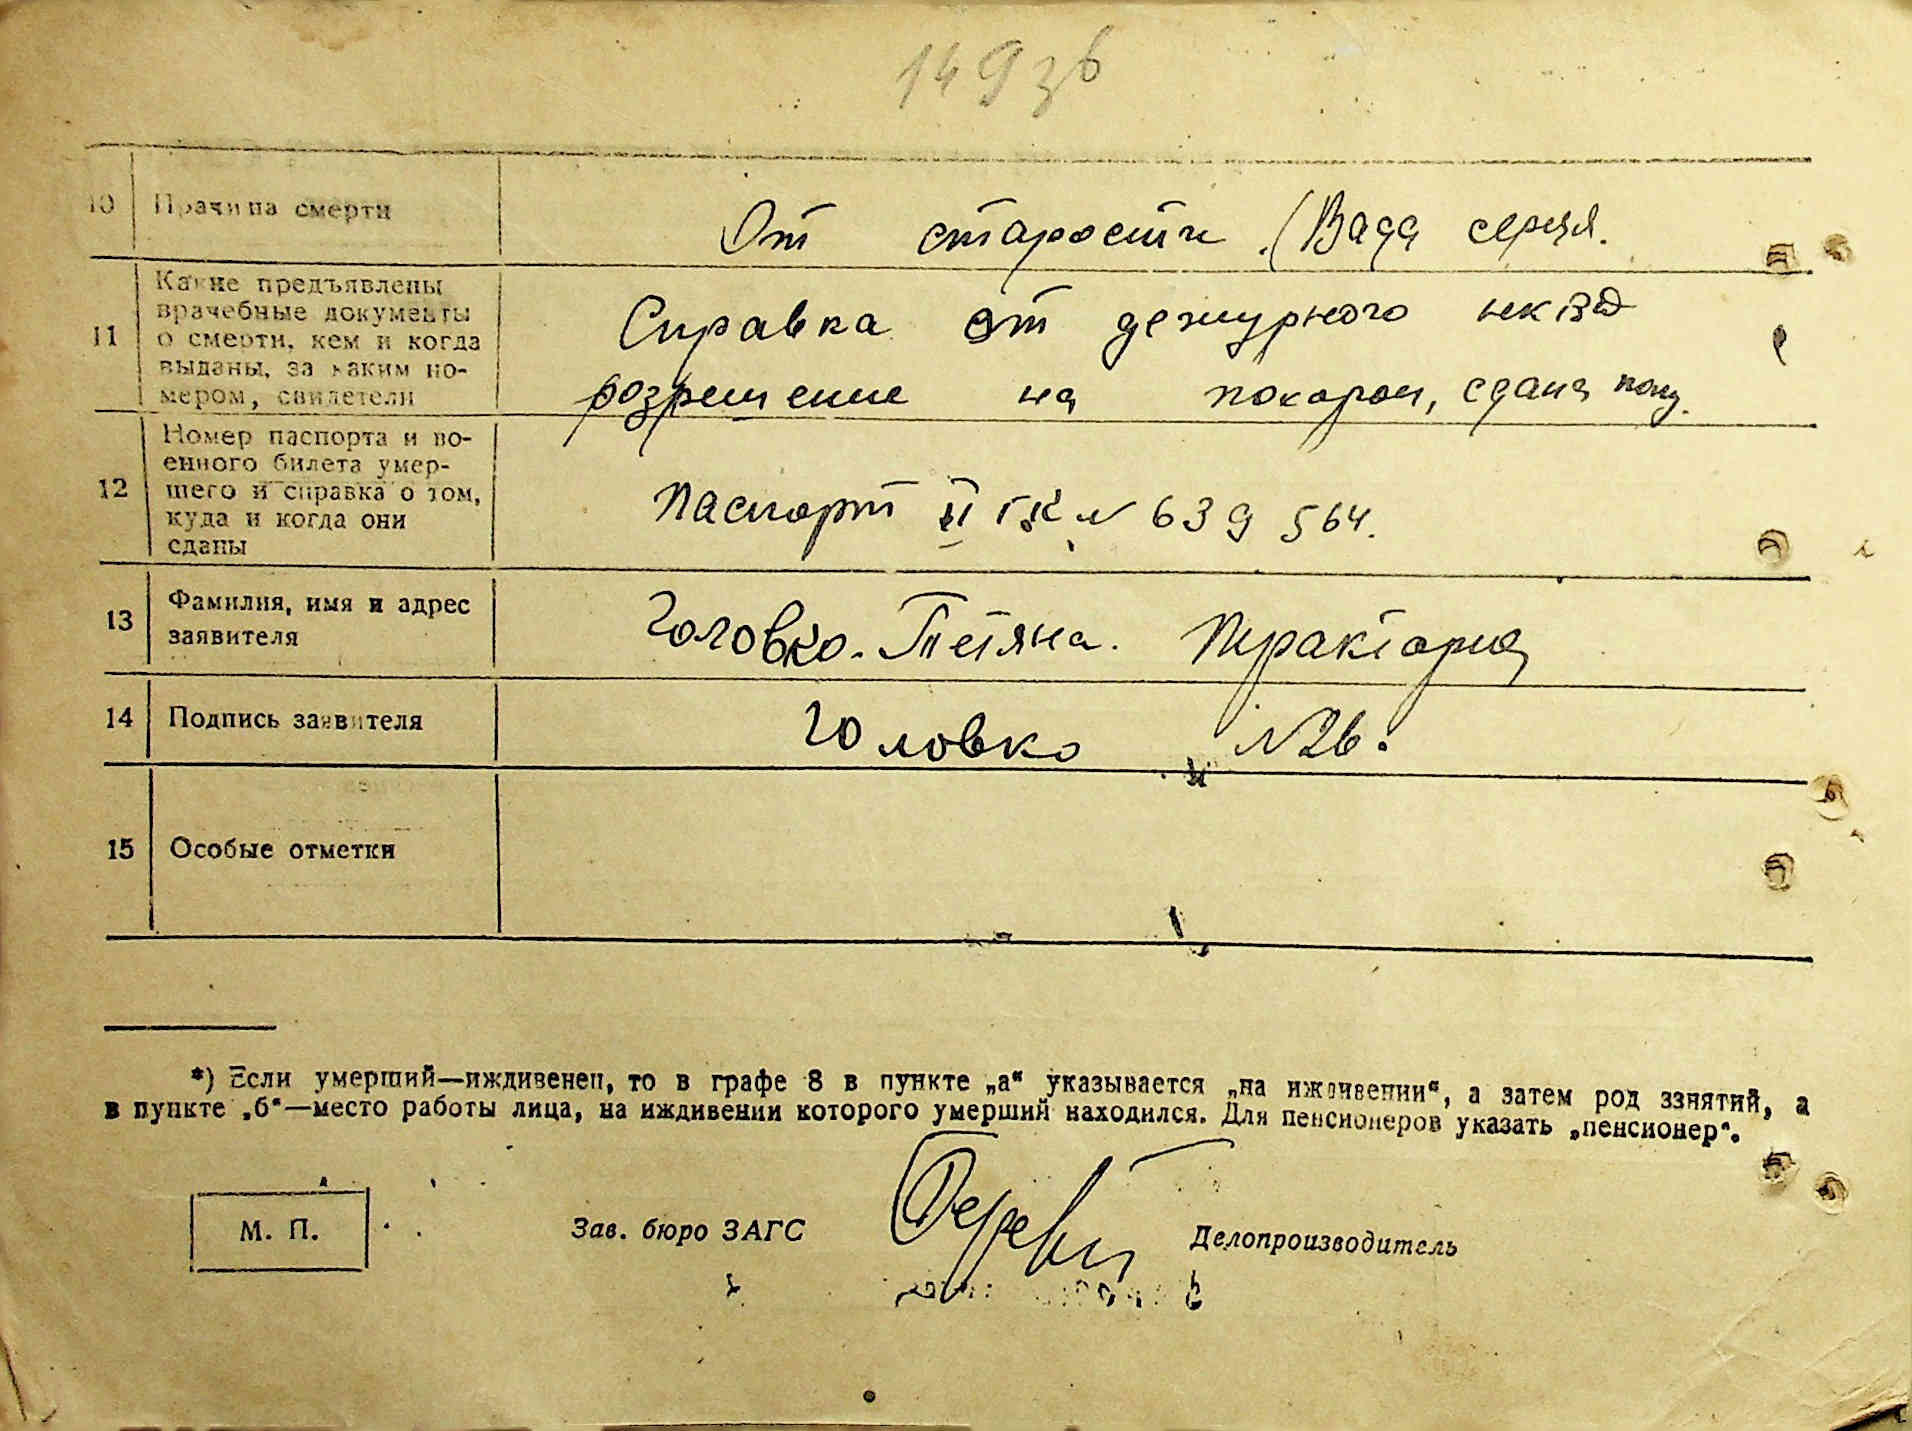 149 зв
10 Причина смерти От старости. (Вада серця.
11 Какие предъявлены врачебные документы о смерти, кем и когда выданы, за каким номером, свидетели
Справка от дежурного нквд
розрешение на похорон, сдана
12 Номер паспорта и во-
енного билета умер-
шего и справка о том,
куда и когда они
сданы
Паспорт II ГК № 639 564.
13 Фамилия, имя и адрес
заявителя
Головко. Тетяна. Тракторна
14 Подпись заявителя Головко №26.
15 Особые отметки
*) Если умерший—иждивенец, то в графе 8 в пункте „а“ указывается „на иждивении“, а затем род ззнятий, а
в пункте „б“—место работы лица, на иждивении которого умерший находился. Для пенсионеров указать „пенсионер“.
М. П. Зав. бюро ЗАГС Делопроизводитель